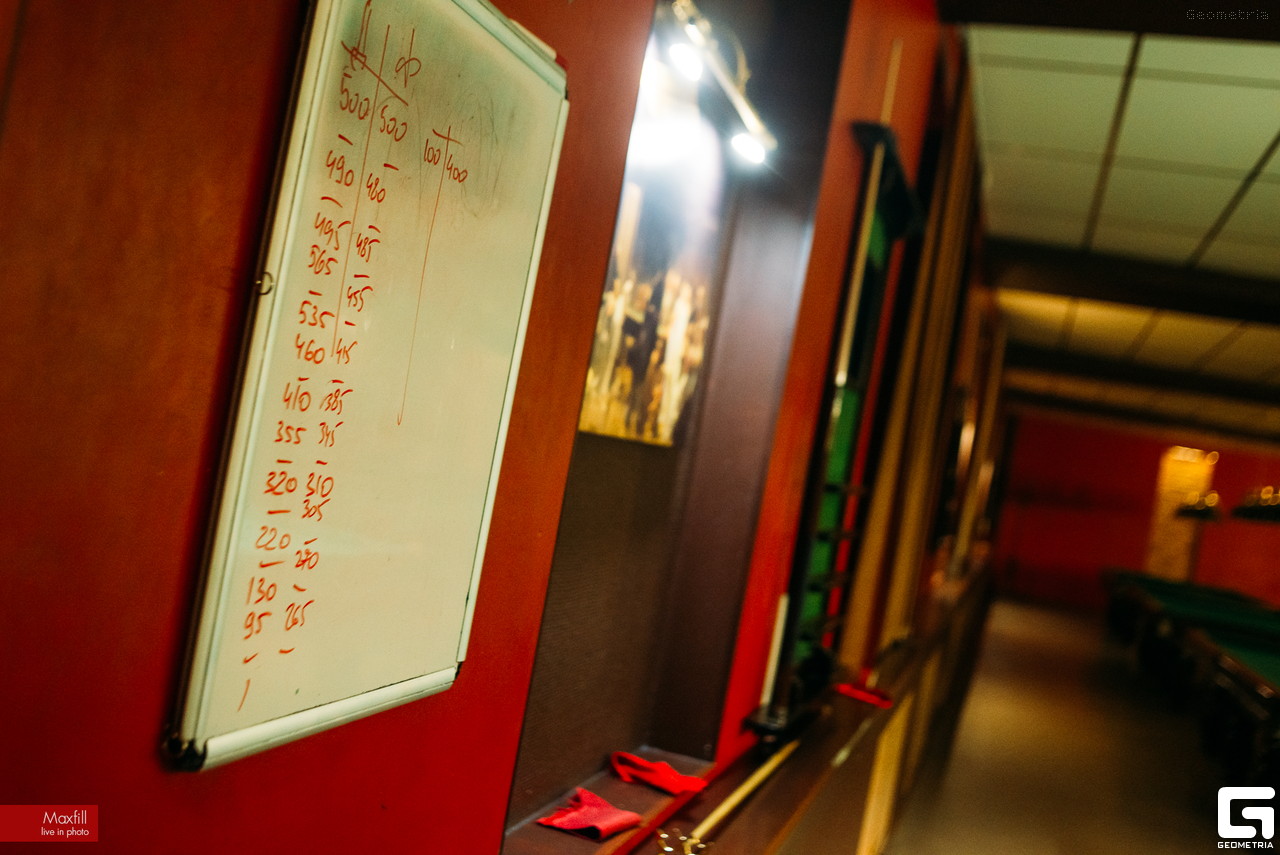 Geometria
ф
500 500
100 400
490 480
495 485
565
455
535
460 415
410 385
355 345
320 310
305
220 270
130
95 265
Maxfill
live in photo
GEOMETRIA